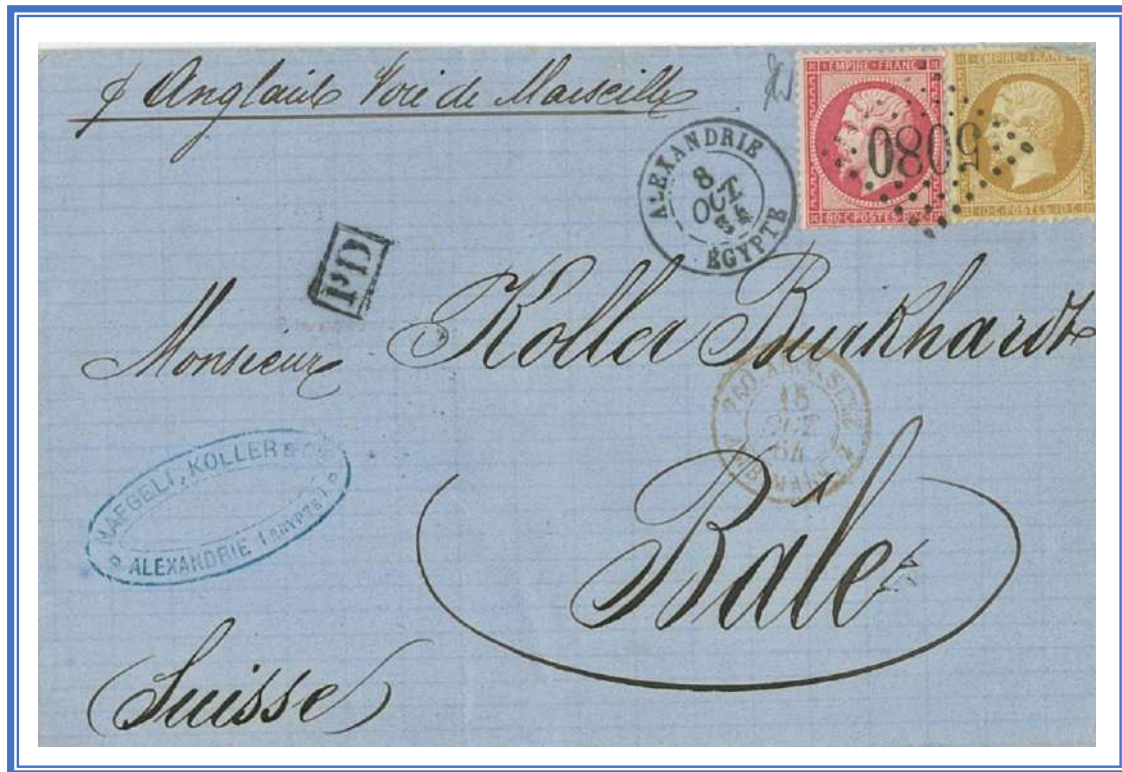 p Anglais Voie de Marseille
EMPIRE FRANC
80 C POSTES 80 C
EMPIRE FRANC
10 C POSTES 10 C
5080
ALEXANDRIE
8
OCT.
64
EGYPTE
PD
Monsieur Koller Burkhardt
15
OCT
64
NAEGELI, KOLLER & CIE
ALEXANDRIE (EGYPTE)
Bâle
Suisse